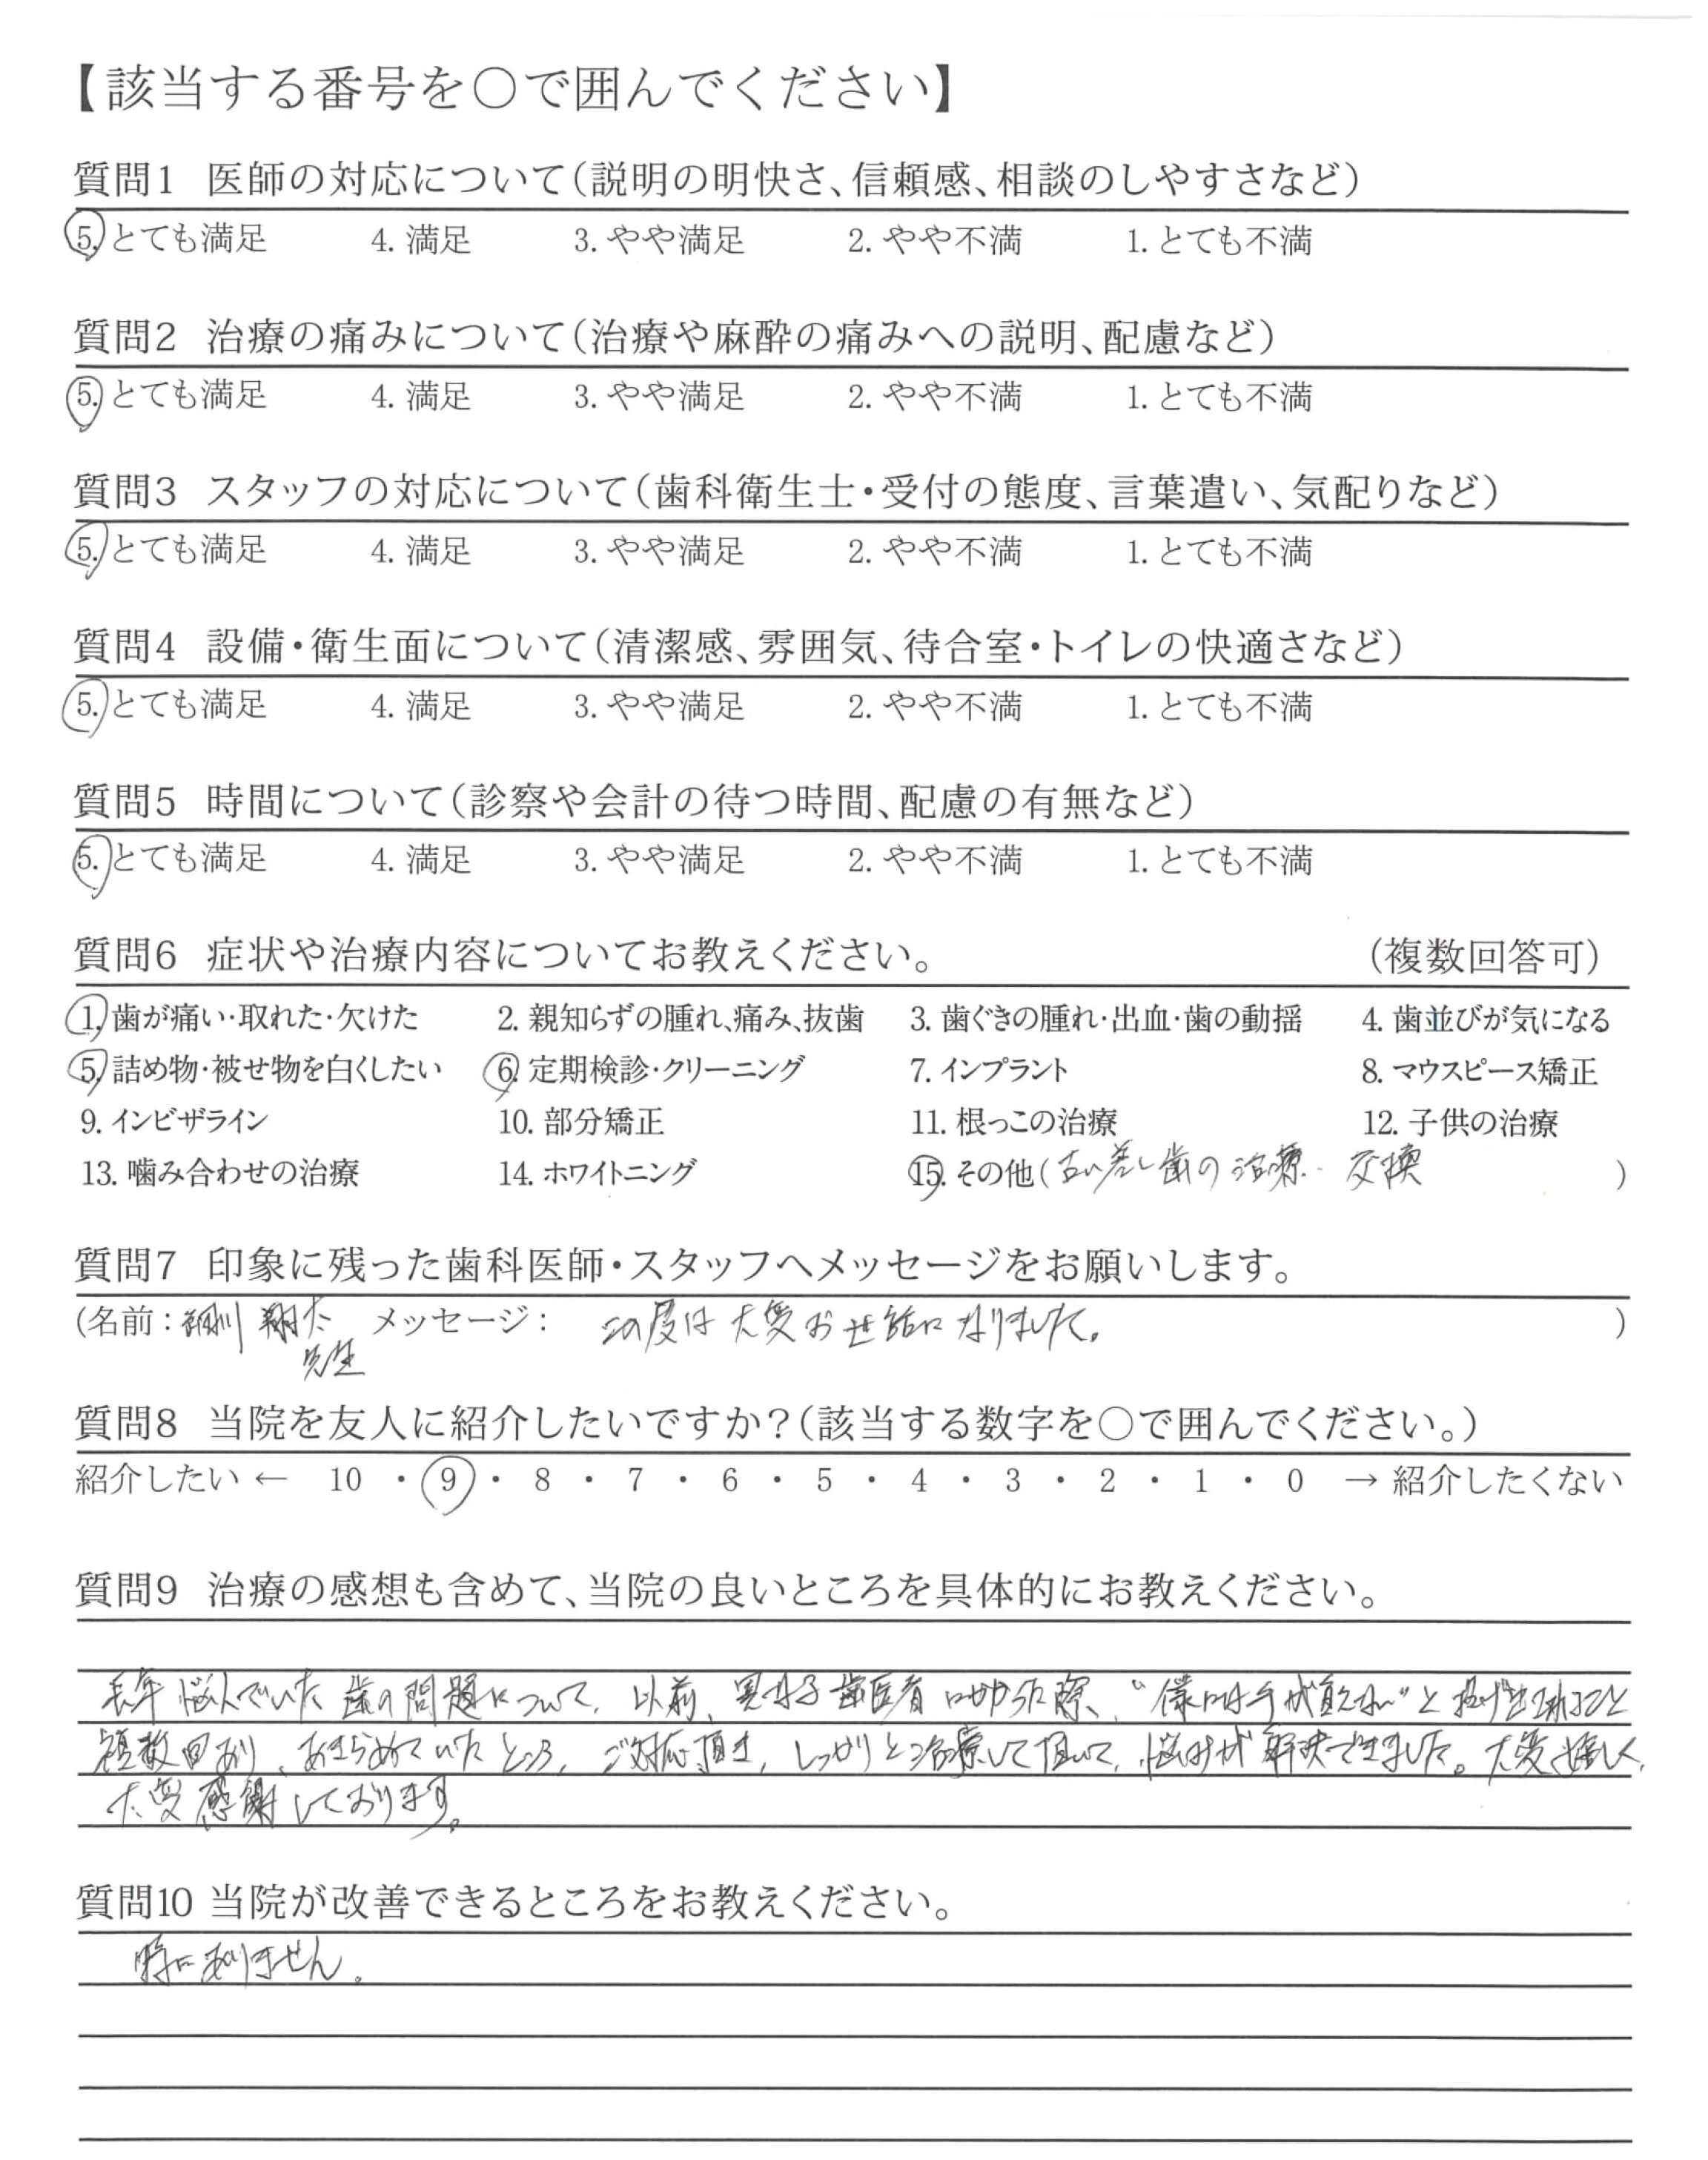 【該当する番号を○で囲んでください】
質問1 医師の対応について（説明の明快さ、信頼感、相談のしやすさなど）
5. とても満足 4. 満足 3. やや満足 2. やや不満 1. とても不満
質問2 治療の痛みについて（治療や麻酔の痛みへの説明、配慮など）
5. とても満足 4. 満足 3. やや満足 2. やや不満 1. とても不満
質問3 スタッフの対応について（歯科衛生士・受付の態度、言葉遣い、気配りなど）
5. とても満足 4. 満足 3. やや満足 2. やや不満 1. とても不満
質問4 設備・衛生面について（清潔感、雰囲気、待合室・トイレの快適さなど）
5. とても満足 4. 満足 3. やや満足 2. やや不満 1. とても不満
質問5 時間について（診察や会計の待つ時間、配慮の有無など）
5. とても満足 4. 満足 3. やや満足 2. やや不満 1. とても不満
質問6 症状や治療内容についてお教えください。 （複数回答可）
1. 歯が痛い・取れた・欠けた 2. 親知らずの腫れ、痛み、抜歯 3. 歯ぐきの腫れ・出血・歯の動揺 4. 歯並びが気になる
5. 詰め物・被せ物を白くしたい 6. 定期検診・クリーニング 7. インプラント 8. マウスピース矯正
9. インビザライン 10. 部分矯正 11. 根っこの治療 12. 子供の治療
13. 噛み合わせの治療 14. ホワイトニング 15. その他（古い差し歯の治療・交換 ）
質問7 印象に残った歯科医師・スタッフへメッセージをお願いします。
（名前：細川 翔太 メッセージ： この度は大変お世話になりました。 ）
先生
質問8 当院を友人に紹介したいですか？（該当する数字を○で囲んでください。）
紹介したい ← 10 ・ 9 ・ 8 ・ 7 ・ 6 ・ 5 ・ 4 ・ 3 ・ 2 ・ 1 ・ 0 → 紹介したくない
質問9 治療の感想も含めて、当院の良いところを具体的にお教えください。
長年悩んでいた歯の問題について、以前、異なる歯医者にかかった際、“僕には手が負えない”と投げ出されること
複数回あり、あきらめていたところ、ご対応頂き、しっかりと治療して頂いて、悩みが解決できました。大変嬉しく、
大変感謝しております。
質問10 当院が改善できるところをお教えください。
特にありません。